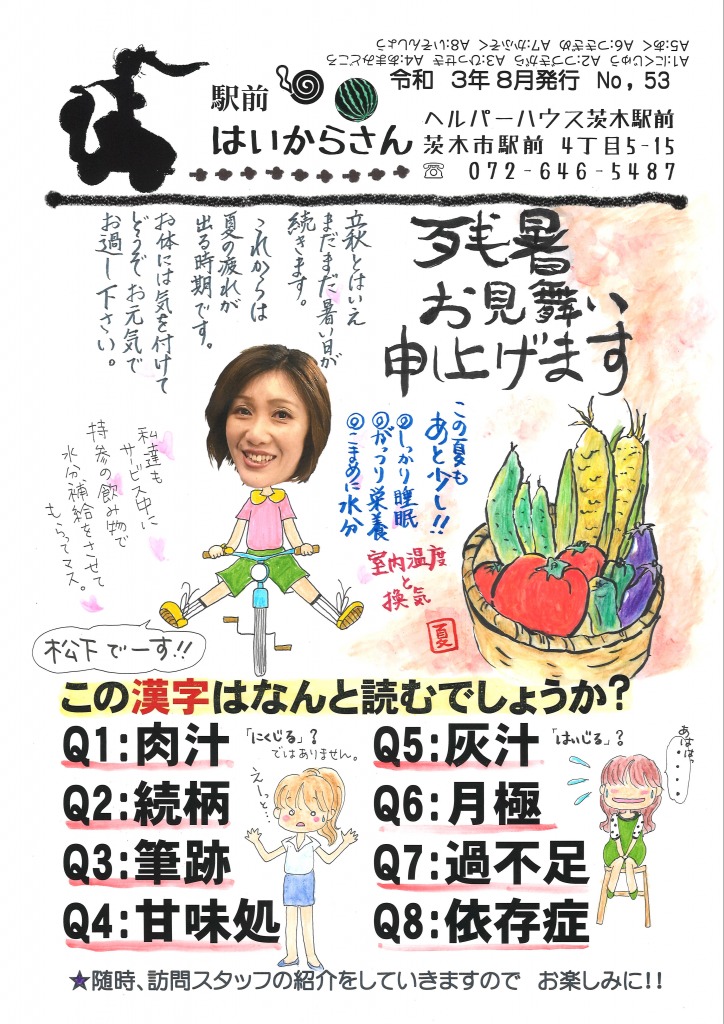 A1:にくじゅう A2:つづきがら A3:ひっせき A4:あまみどころ
A5:あく A6:つきぎめ A7:かふそく A8:いそんしょう
令和 3年8月発行 No, 53
駅前
はいからさん
ヘルパーハウス茨木駅前
茨木市駅前 4丁目5-15
☏ 072-646-5487
残暑
お見舞い
申し上げます
立秋とはいえ
まだまだ暑い日が
続きます。
これからは
夏の疲れが
出る時期です。
お体には気を付けて
どうぞお元気で
お過し下さい。
この夏も
あと少し!!
◎しっかり睡眠
◎がっつり栄養
◎こまめに水分
室内温度
と
換気
夏
私達も
サービス中に
持参の飲み物で
水分補給をさせて
もらってマス。
松下でーす!!
この漢字はなんと読むでしょうか?
Q1:肉汁 「にくじる」?
ではありません。
Q2:続柄
Q3:筆跡
Q4:甘味処
えーっと…
Q5:灰汁 「はいじる」?
Q6:月極
Q7:過不足
Q8:依存症
あははっ…
★随時、訪問スタッフの紹介をしていきますので お楽しみに!!